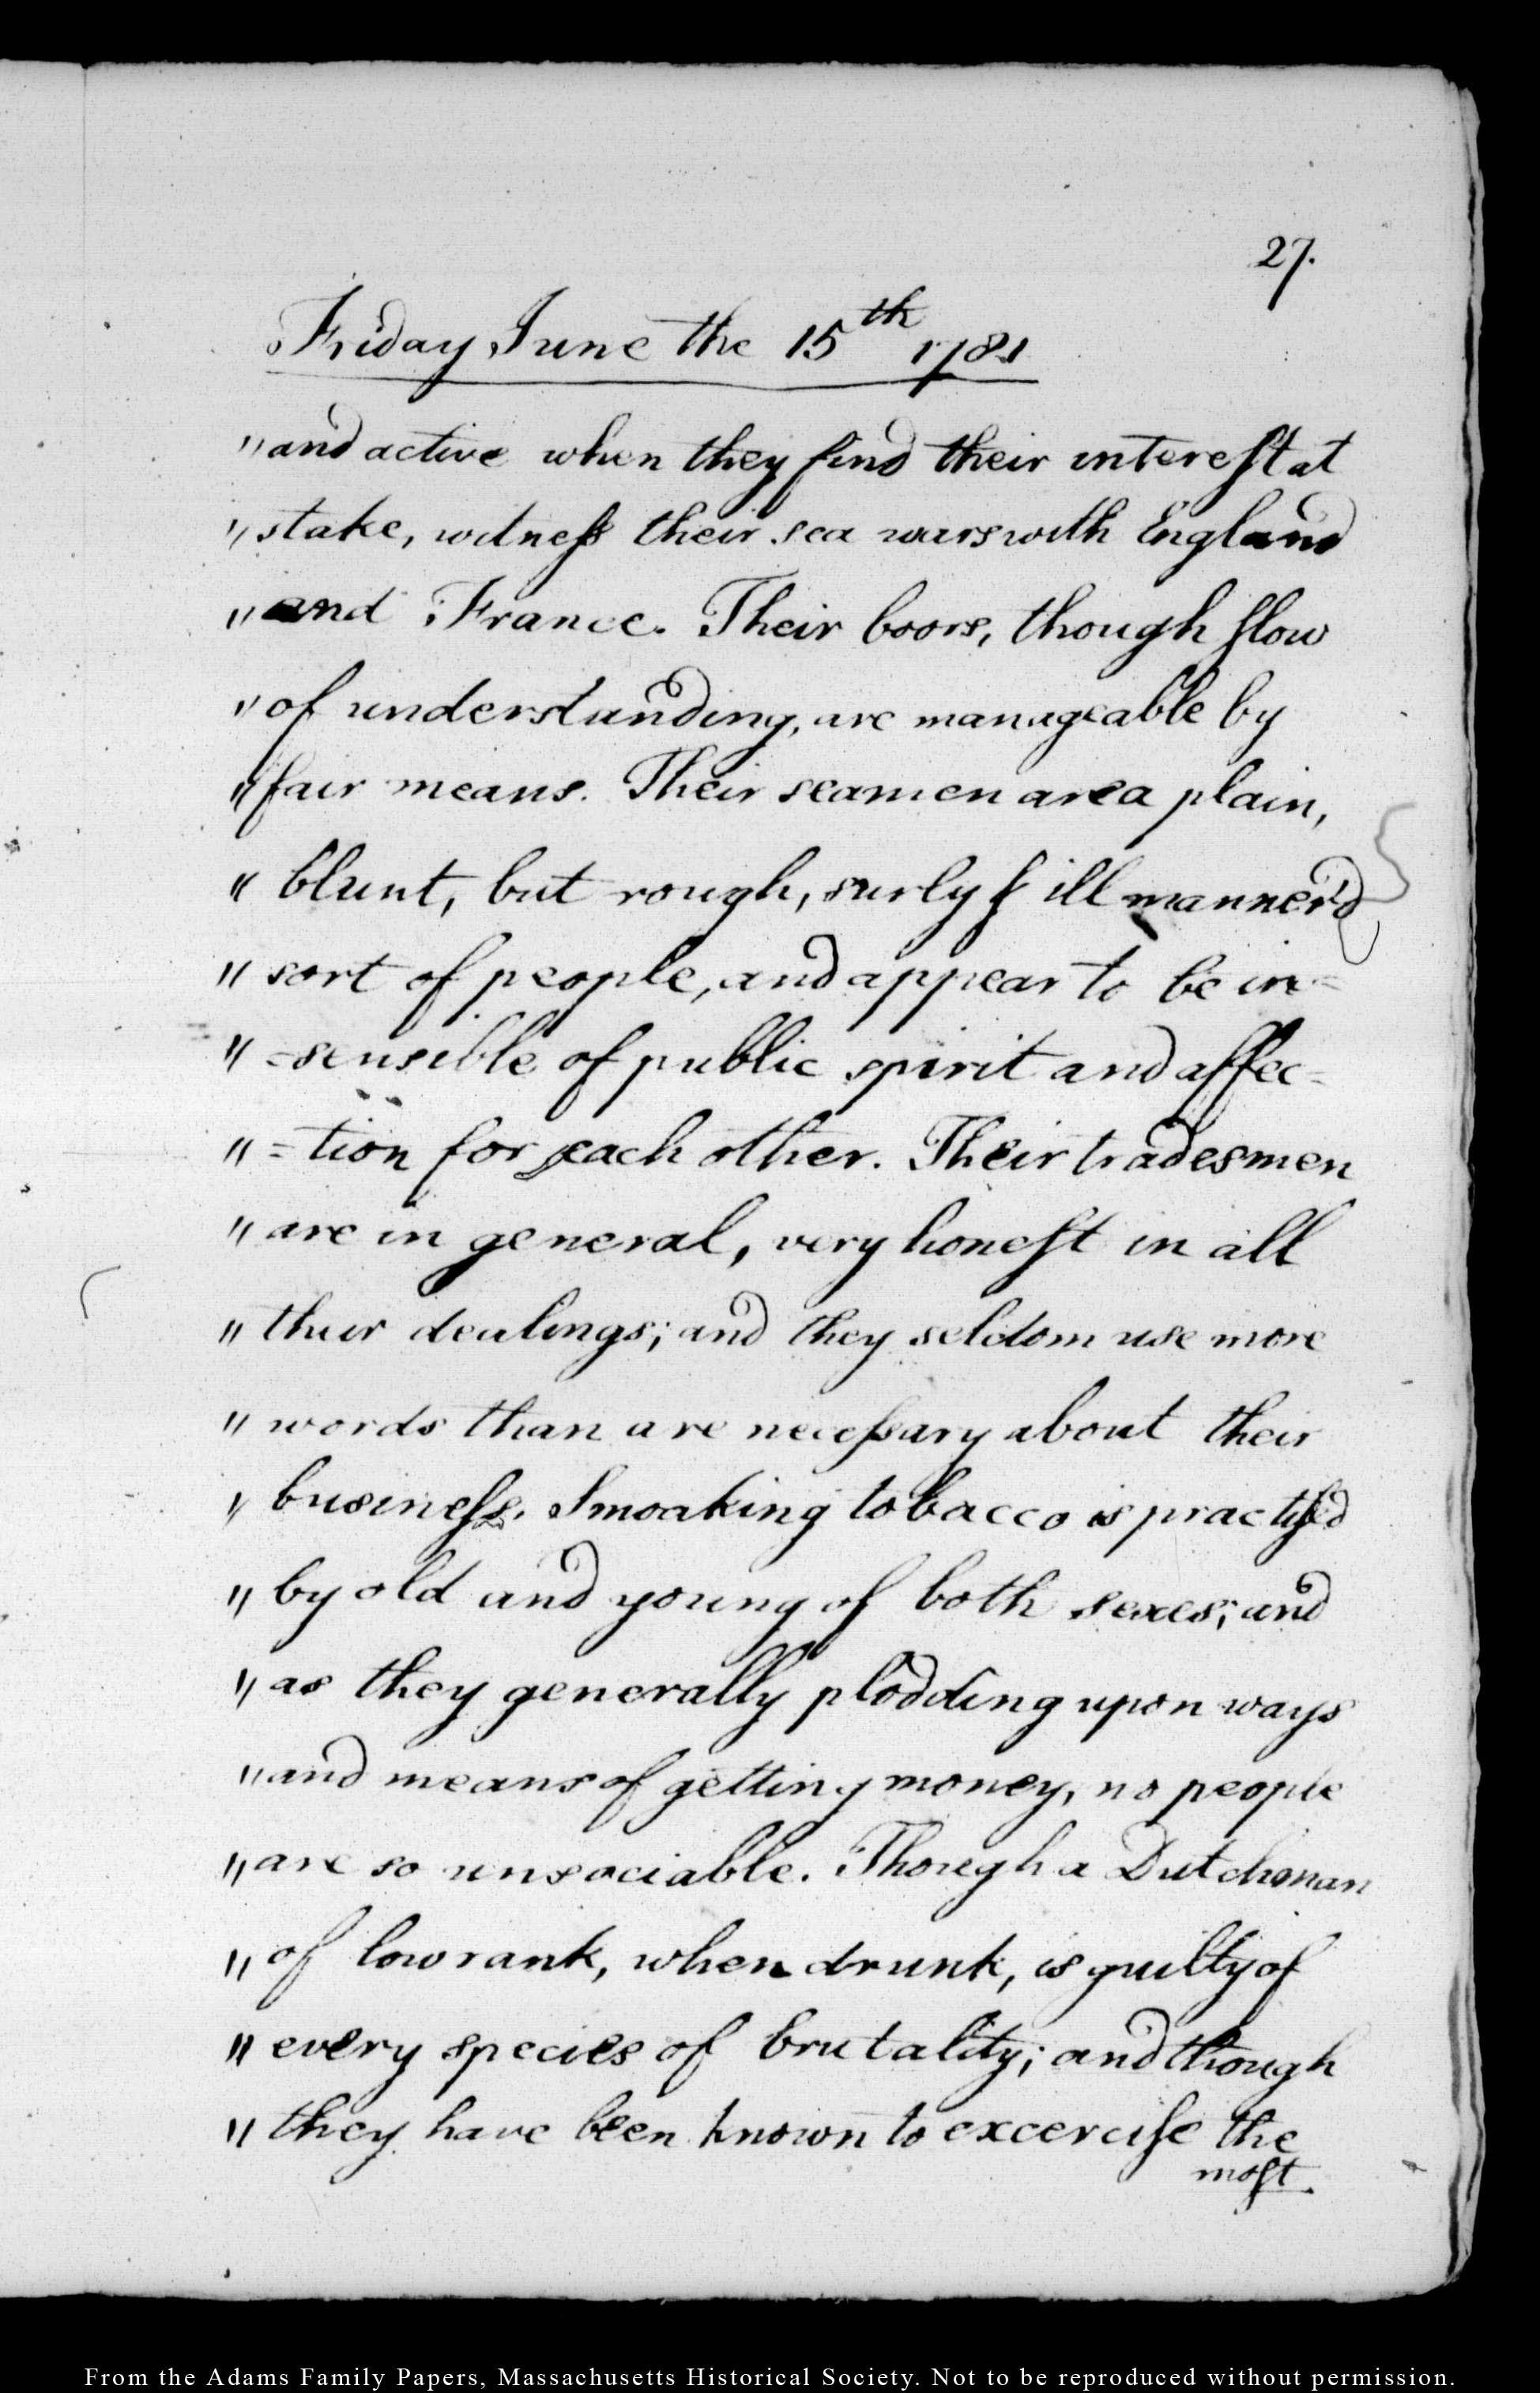 27.
Friday June the 15th 1781
"and active when they find their interest at
"stake, witness their sea wars with England
"and France. Their boors, though slow
"of understanding, are manageable by
"fair means. Their seamen are a plain,
" blunt, but rough, surly & ill manner'd
" sort of people, and appear to be in=
" =sensible of public spirit and affec=
" =tion for each other. Their tradesmen
" are in general, very honest in all
" their dealings; and they seldom use more
" words than are necessary about their
" business. Smoaking tobacco is practised
" by old and young of both sexes; and
" as they generally plodding upon ways
" and means of getting money, no people
" are so unsociable. Though a Dutchman
" of low rank, when drunk, is guilty of
" every species of brutality; and though
" they have been known to excercise the
most
From the Adams Family Papers, Massachusetts Historical Society. Not to be reproduced without permission.